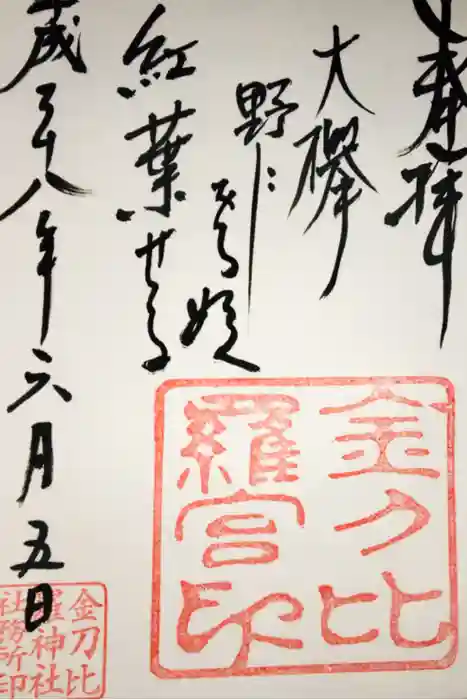 奉拝
大欅
野に
紅葉せる
成二十八年六月五日
金刀比
羅宮印
金刀比
羅神社
社務所印